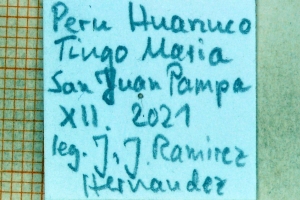 Peru Huanuco
Tingo Maria
San Juan Pampa
XII. 2021
leg. J. J. Ramirez
Hernandez